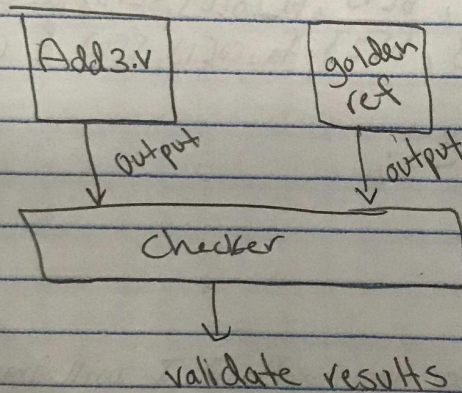 Add3.v
golden
ref
output
output
Checker
validate results